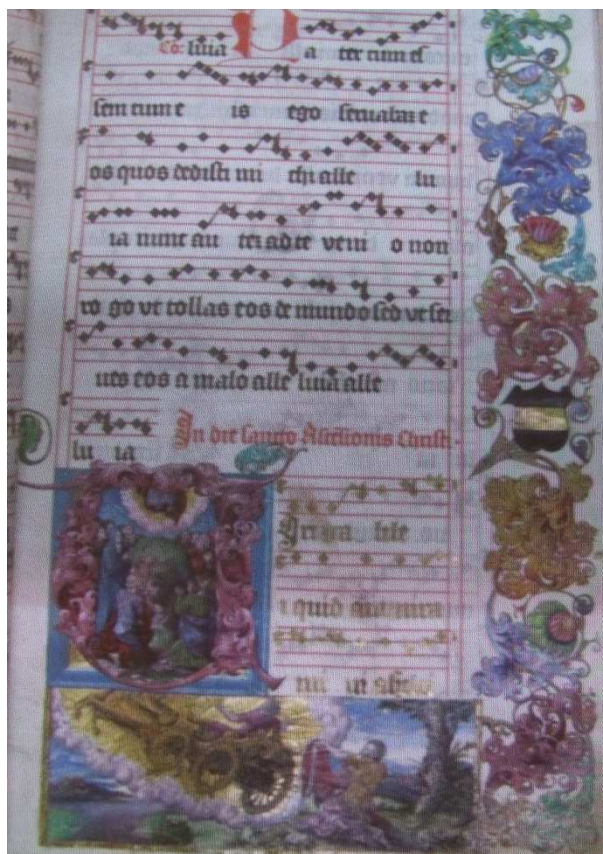 Co: luia Pa ter cum es
sem cum e is ego seruabam e
os quos dedisti mi chi alle lu
ia nunc au tem ad te veni o non
ro go vt tollas eos de mundo sed vt ser
ues eos a malo alle luia alle
lu ia In die sancto Ascensionis Christi
Viri ga lile
i quid
ni in